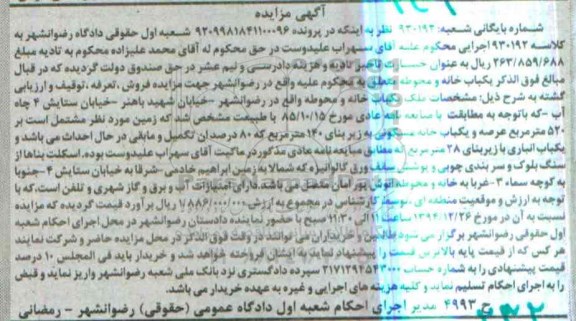 آگهی مزایده
شماره بایگانی شعبه: ۹۳۰۱۹۳ نظر به اینکه در پرونده ۹۲۰۹۹۸۱۸۴۱۱۰۰۰۹۶ شعبه اول حقوقی دادگاه رضوانشهر به
کلاسه ۹۳۰۱۹۲ اجرایی محکوم علیه آقای سهراب علیدوست در حق محکوم له آقای محمد علیزاده محکوم به تادیه مبلغ
۲۶۳/۸۵۹/۶۸۸ ریال به عنوان خسارات تاخیر تادیه و هزینه دادرسی و نیم عشر در حق صندوق دولت گردیده که در قبال
مبالغ فوق الذکر یکباب خانه و محوطه متعلق به محکوم علیه واقع در رضوانشهر جهت مزایده فروش، تعرفه، توقیف و ارزیابی
گشته به شرح ذیل: مشخصات ملک یکباب خانه و محوطه واقع در رضوانشهر -خیابان شهید باهنر -خیابان ستایش ۴ چاه
آب -که باتوجه به مطابقت با مبایعه نامه عادی مورخ ۸۵/۱۰/۱۵ با طبیعت مشخص شد که زمین مورد نظر مشتمل است بر
۵۲۰ مترمربع عرصه و یکباب خانه مسکونی به زیر بنای ۱۴۰ مترمربع که ۸۰ درصد ان تکمیل و مابقی در حال احداث می باشد و
یکباب انباری با زیربنای ۲۸ مترمربع که مطابق مبایعه نامه عادی مذکور در مالکیت آقای سهراب علیدوست بوده، اسکلت بناها از
سنگ بلوک و سر بندی چوبی و پوشش سقف ورق گالوانیزه که شمالا به زمین ابراهیم خادمی -شرقا به خیابان ستایش ۴ -جنوبا
به کوچه سما ۳ -غربا به خانه و محوطه انوش پور امان متصل می باشد. دارای امتیازات آب و برق و گاز شهری و تلفن است، که با
توجه به ارزش و موقعیت منطقه ای توسط کارشناس در مجموع به ارزش ۱/۸۸۶/۰۰۰/۰۰۰ ریال برآورد قیمت گردیده که مزایده
نسبت به آن در مورخ ۱۳۹۴/۱۲/۲۶ ساعت ۱۱ الی ۱۱/۳۰ صبح با حضور نماینده دادستان رضوانشهر در محل اجرای احکام شعبه
اول حقوقی رضوانشهر برگزار می شود طالبین و خریداران می توانند در وقت فوق الذکر در محل مزایده حاضر و شرکت نمایند
هر کس که از قیمت پایه بالاترین قیمت را پیشنهاد نماید به ایشان فروخته خواهد شد و خریدار باید فی المجلس ۱۰ درصد
قیمت پیشنهادی را به شماره حساب ۲۱۷۱۳۹۴۵۴۳۰۰۰ سپرده دادگستری نزد بانک ملی شعبه رضوانشهر واریز نماید و قبض
را به اجرای احکام تسلیم نماید و کلیه هزینه های اجرایی و غیره به عهده خریدار می باشد.
ح ۴۹۹۳ مدیر اجرای احکام شعبه اول دادگاه عمومی (حقوقی) رضوانشهر - رمضانی